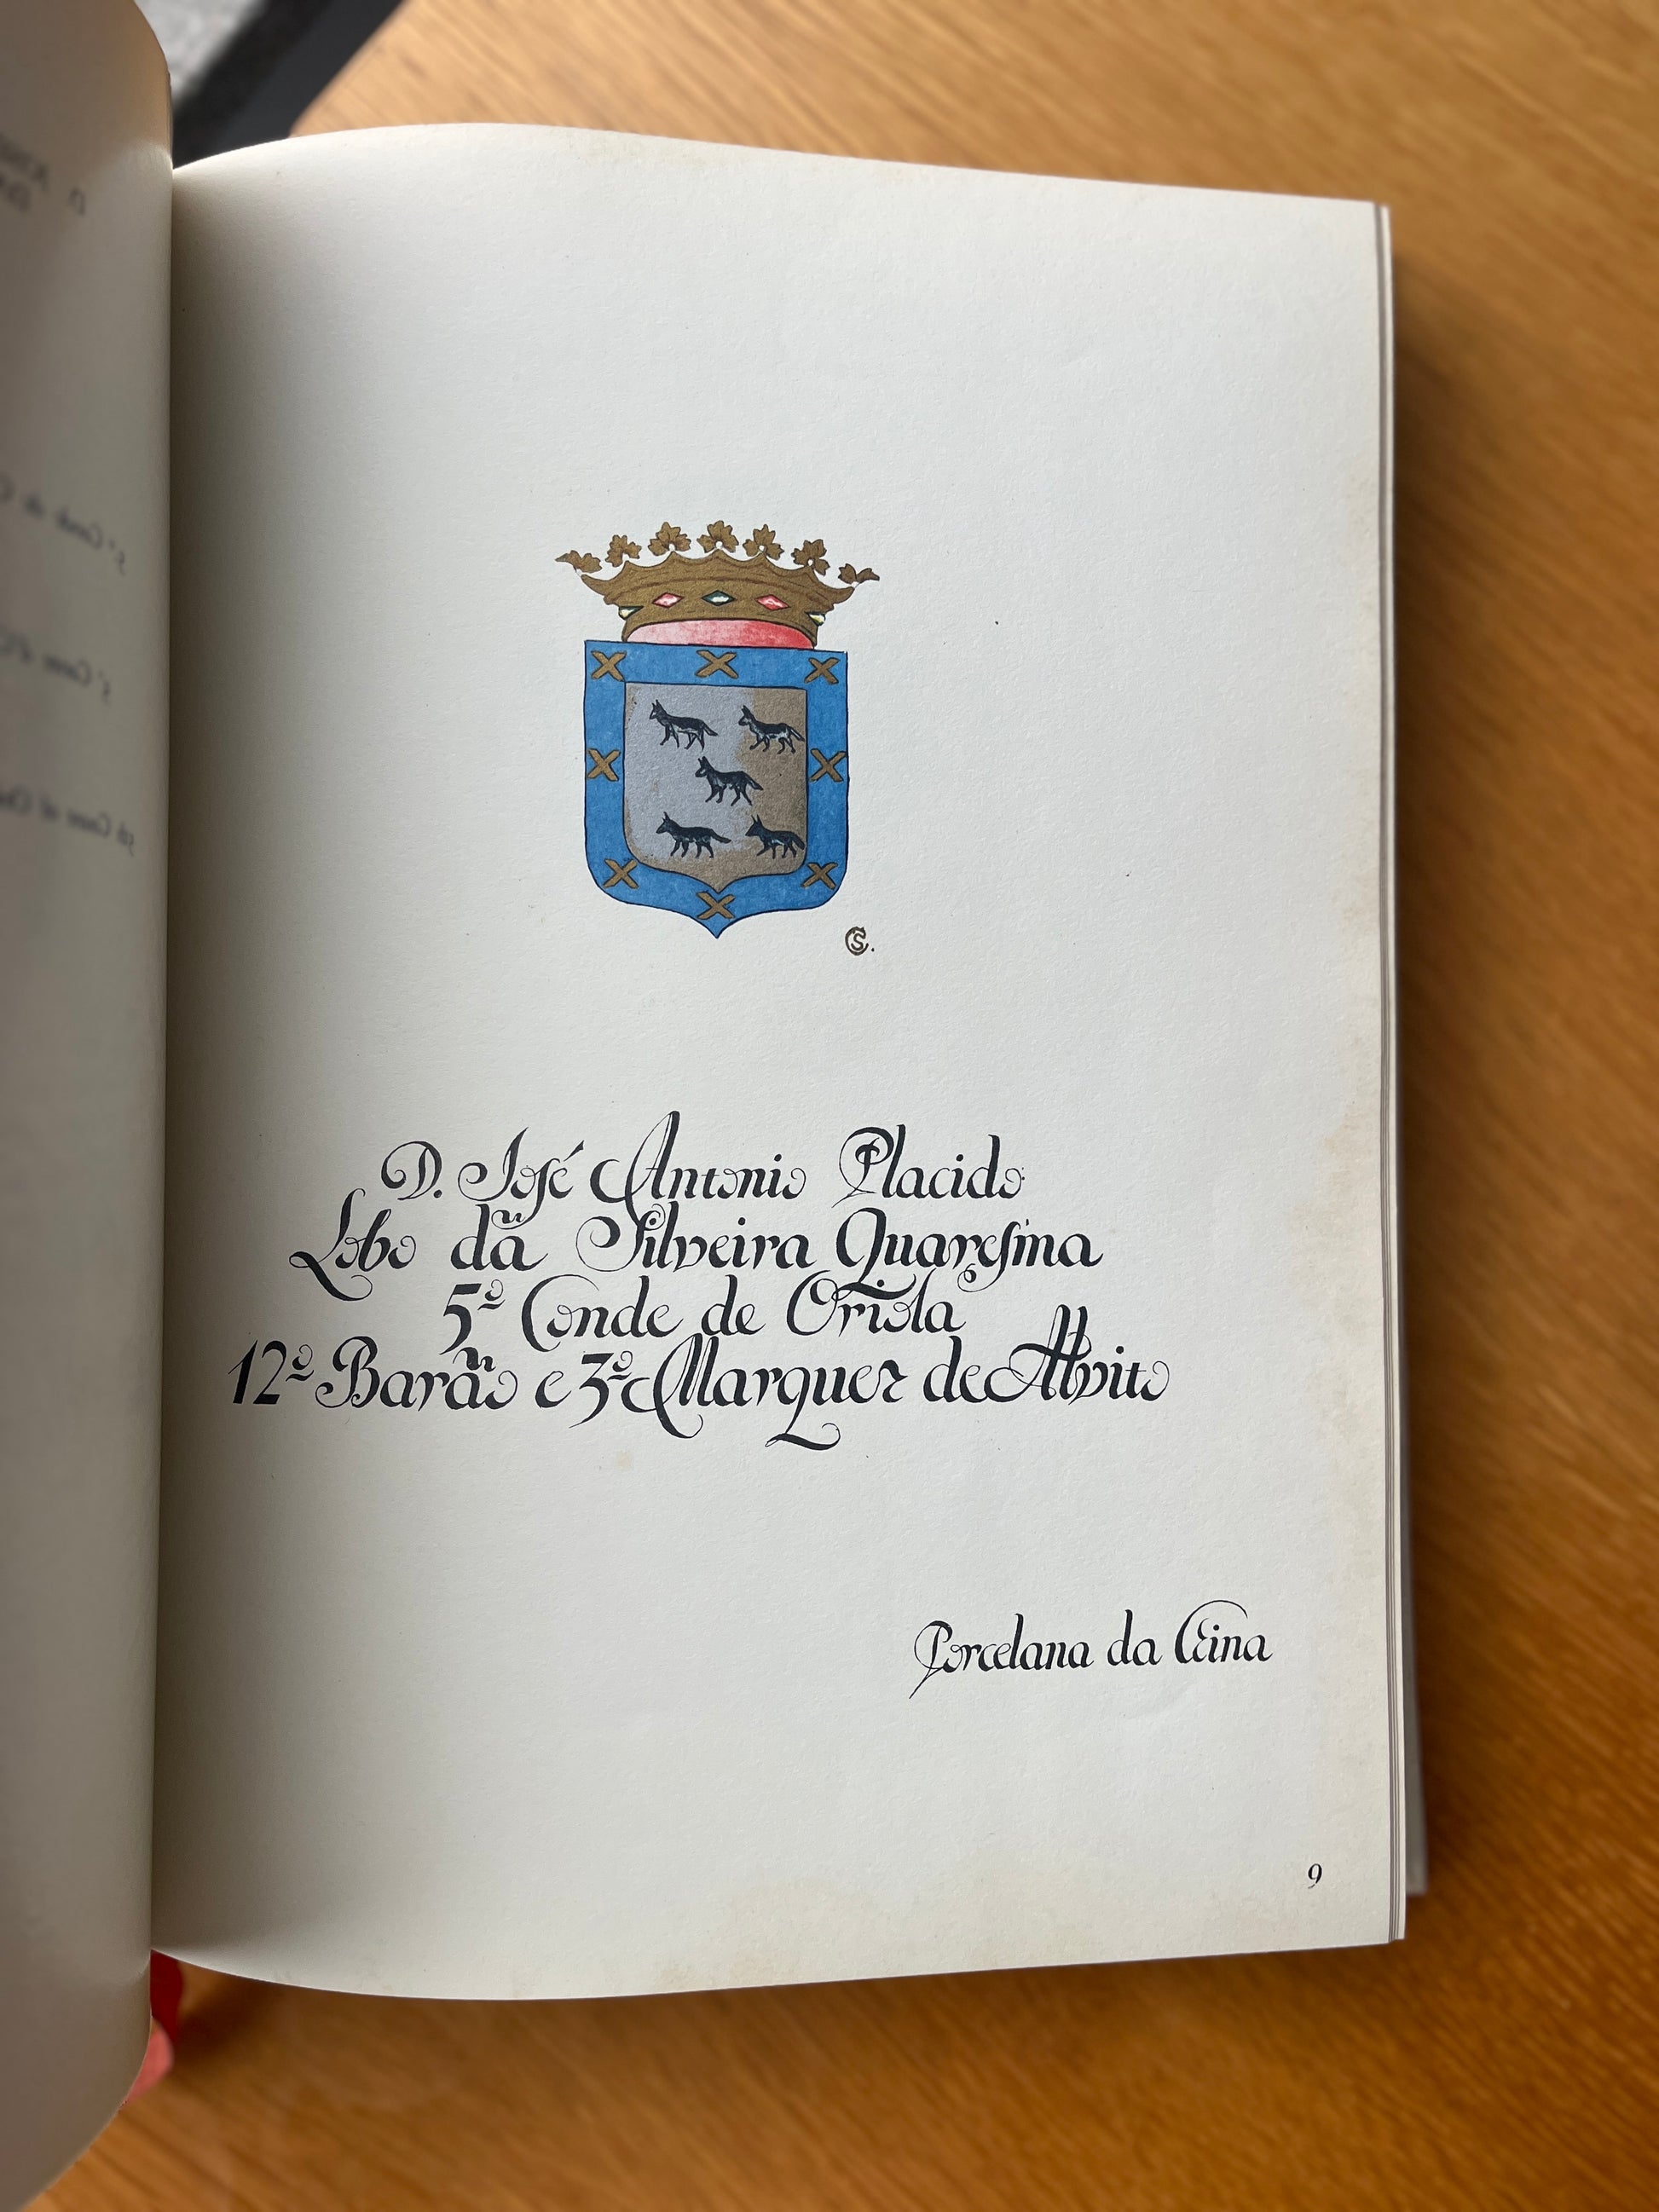 CS.
D. José Antonio Placido
Lobo da Silveira Quaresma
5º Conde de Oriola
12º Barão e 3º Marquez de Alvito
Porcelana da China
9